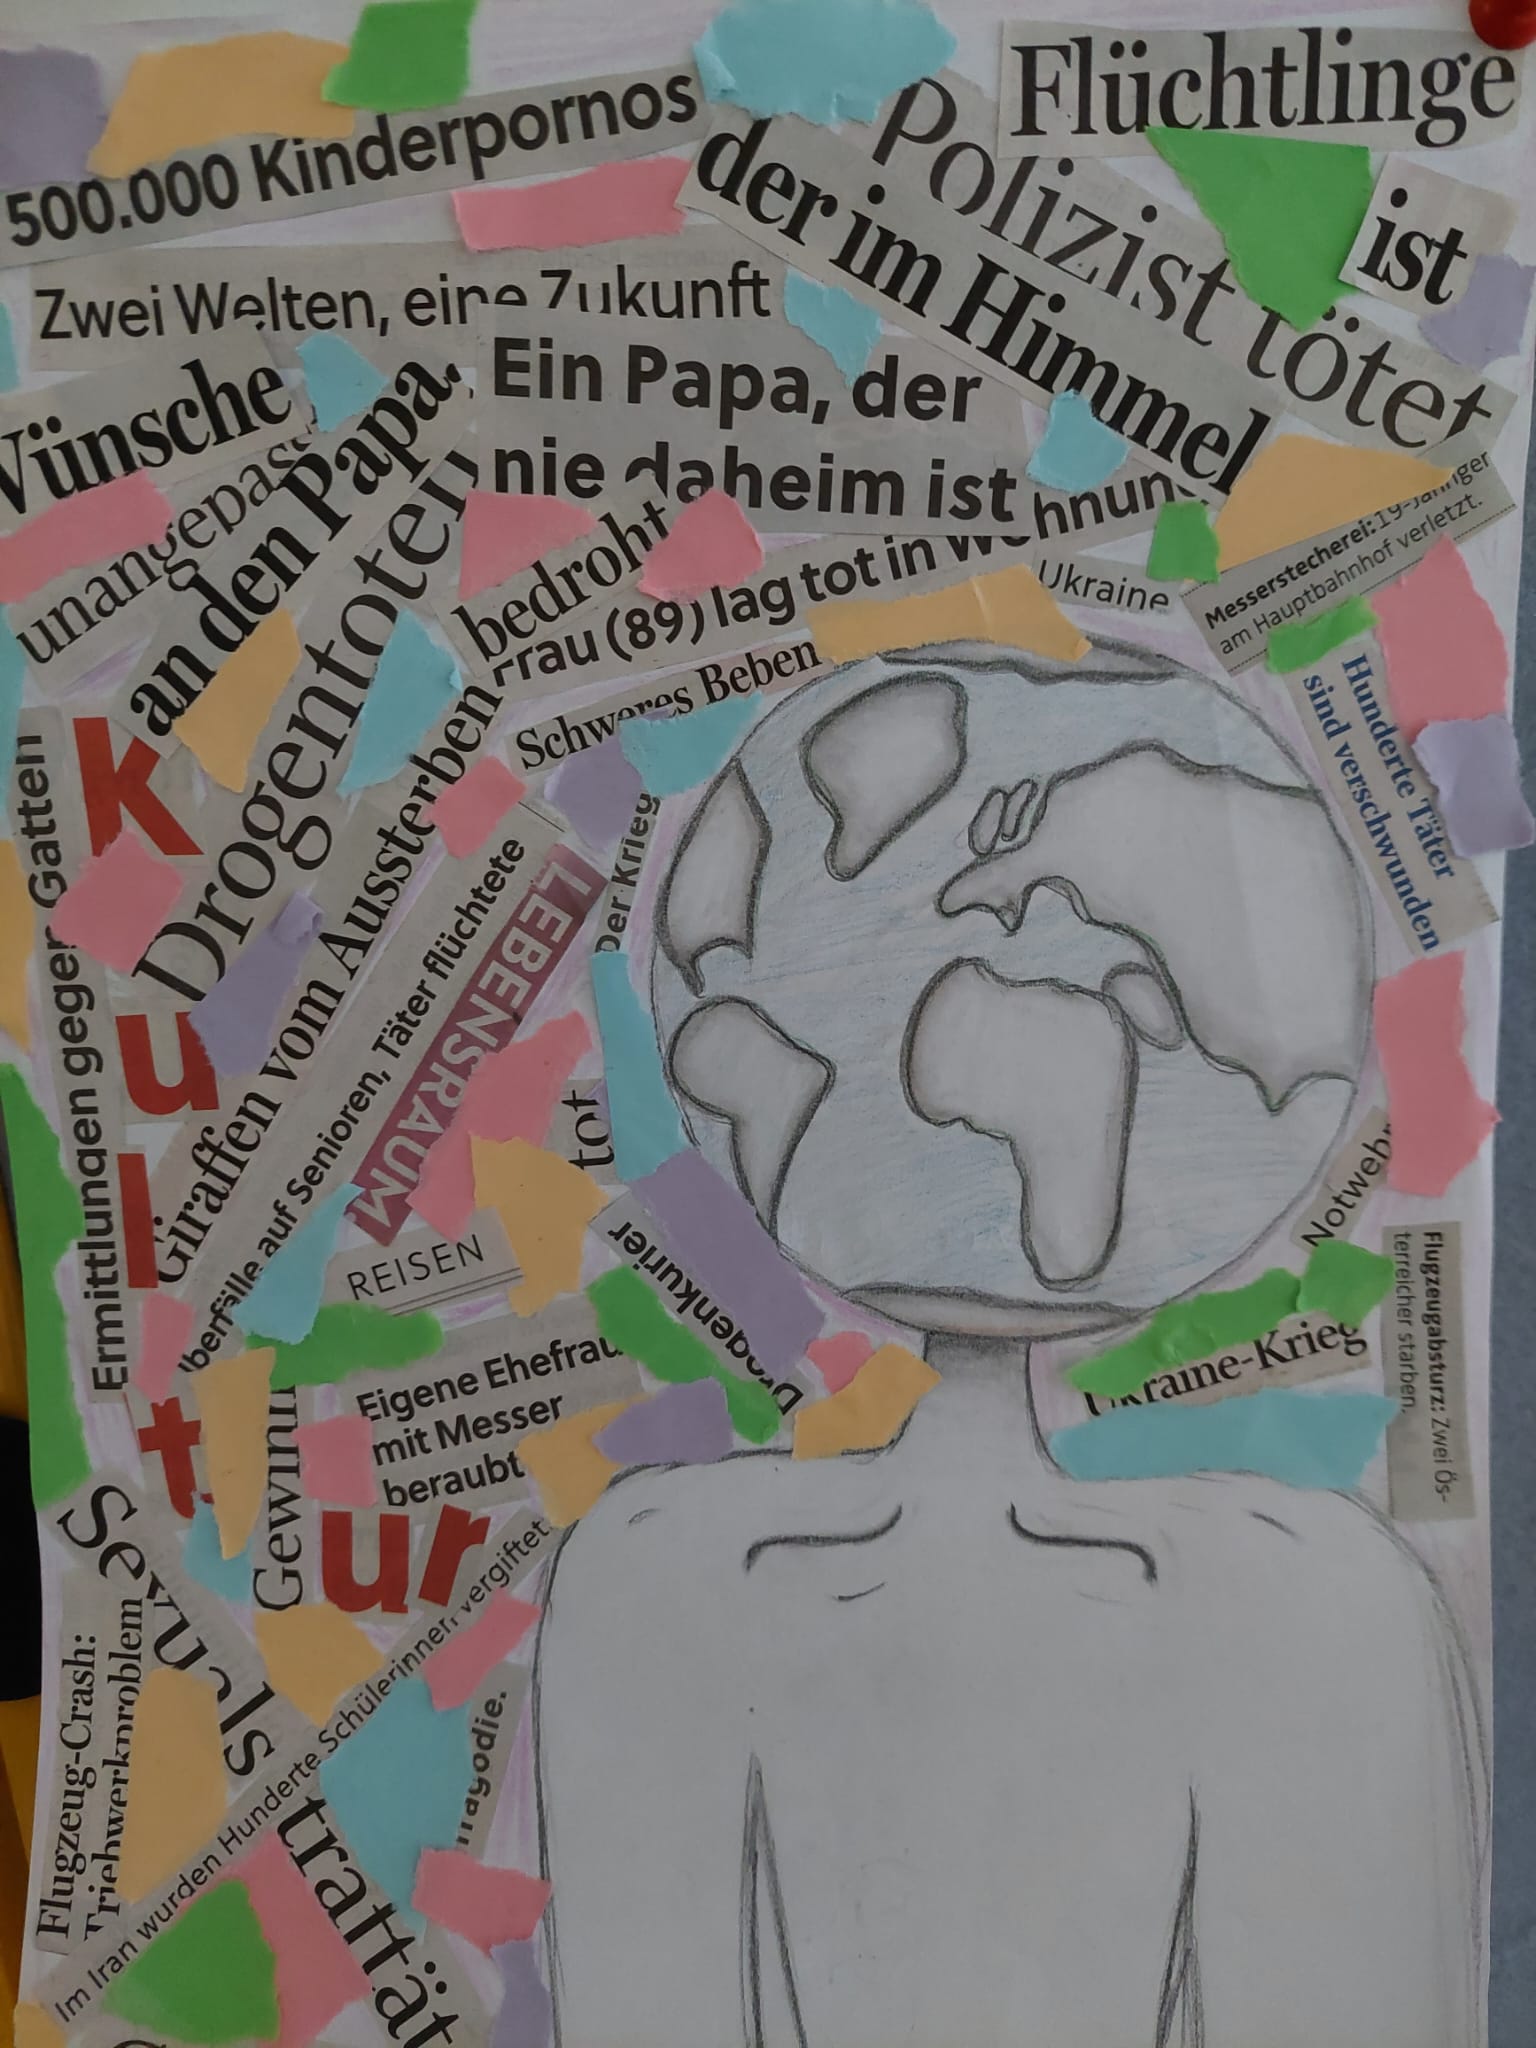 Flüchtlinge
500.000 Kinderpornos
Polizist tötet
der im Himmel
ist
Zwei Welten, eine Zukunft
Ein Papa, der
nie daheim ist
Wünsche
an den Papa.
Drogentoten
bedroht
Frau (89) lag tot in Wohnung
Ukraine
Messerstecherei: 19-Jähriger
am Hauptbahnhof verletzt.
Schweres Beben
Hunderte Täter
sind verschwunden
Kultur
Ermittlungen gegen Gatten
Giraffen vom Aussterben
auf Senioren, Täter flüchtete
LEBENSRAUM
Der Krieg
tot
REISEN
Drogenkurier
Notwehr
Ukraine-Krieg
Flugzeugabsturz: Zwei Ös-
terreicher starben.
Eigene Ehefrau
mit Messer
beraubt
Gewinn
Sexuals
trattät
Flugzeug-Crash:
Triebwerkproblem
Im Iran wurden Hunderte Schülerinnen vergiftet
Tragödie.